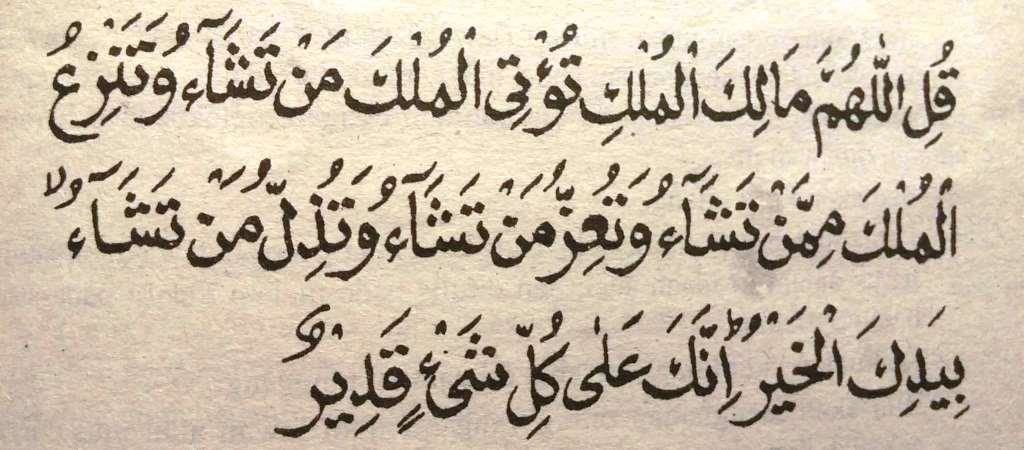 قُلِ اللّٰهُمَّ مَالِكَ الْمُلْكِ تُؤْتِى الْمُلْكَ مَنْ تَشَآءُ وَتَنْزِعُ
الْمُلْكَ مِمَّنْ تَشَآءُ وَتُعِزُّ مَنْ تَشَآءُ وَتُذِلُّ مَنْ تَشَآءُ ۙ
بِيَدِكَ الْخَيْرُ ؕ اِنَّكَ عَلٰى كُلِّ شَىْءٍ قَدِيْرٌ